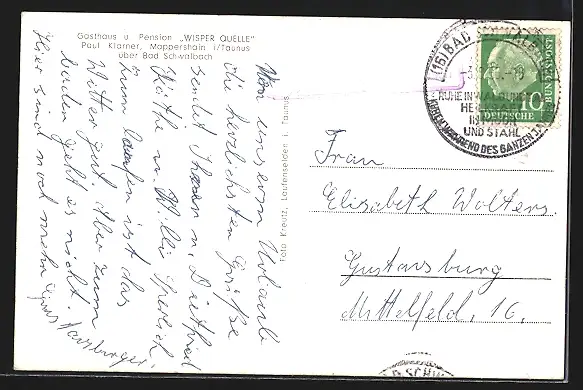 Gasthaus u. Pension „WISPER QUELLE"
Paul Klarner, Mappershain i/Taunus
über Bad Schwalbach
Von unserem Urlaub
die herzlichsten Grüße
sendet Ihnen u. Dietfried
Käthe u. Willi
zum laufen ist das
Wetter gut. Aber zum
baden geht es nicht.
Hier sind noch mehr
Foto Kreutz, Laufenselden i. Taunus
(16) BAD
RUHE IN WALDLUFT
HEILBAD
IN MOOR
UND STAHL
WÄHREND DES GANZEN
DEUTSCHE
BUNDESPOST
10
Frau
Elisabeth Wolters.
Gustavsburg
Mittelfeld, 16.